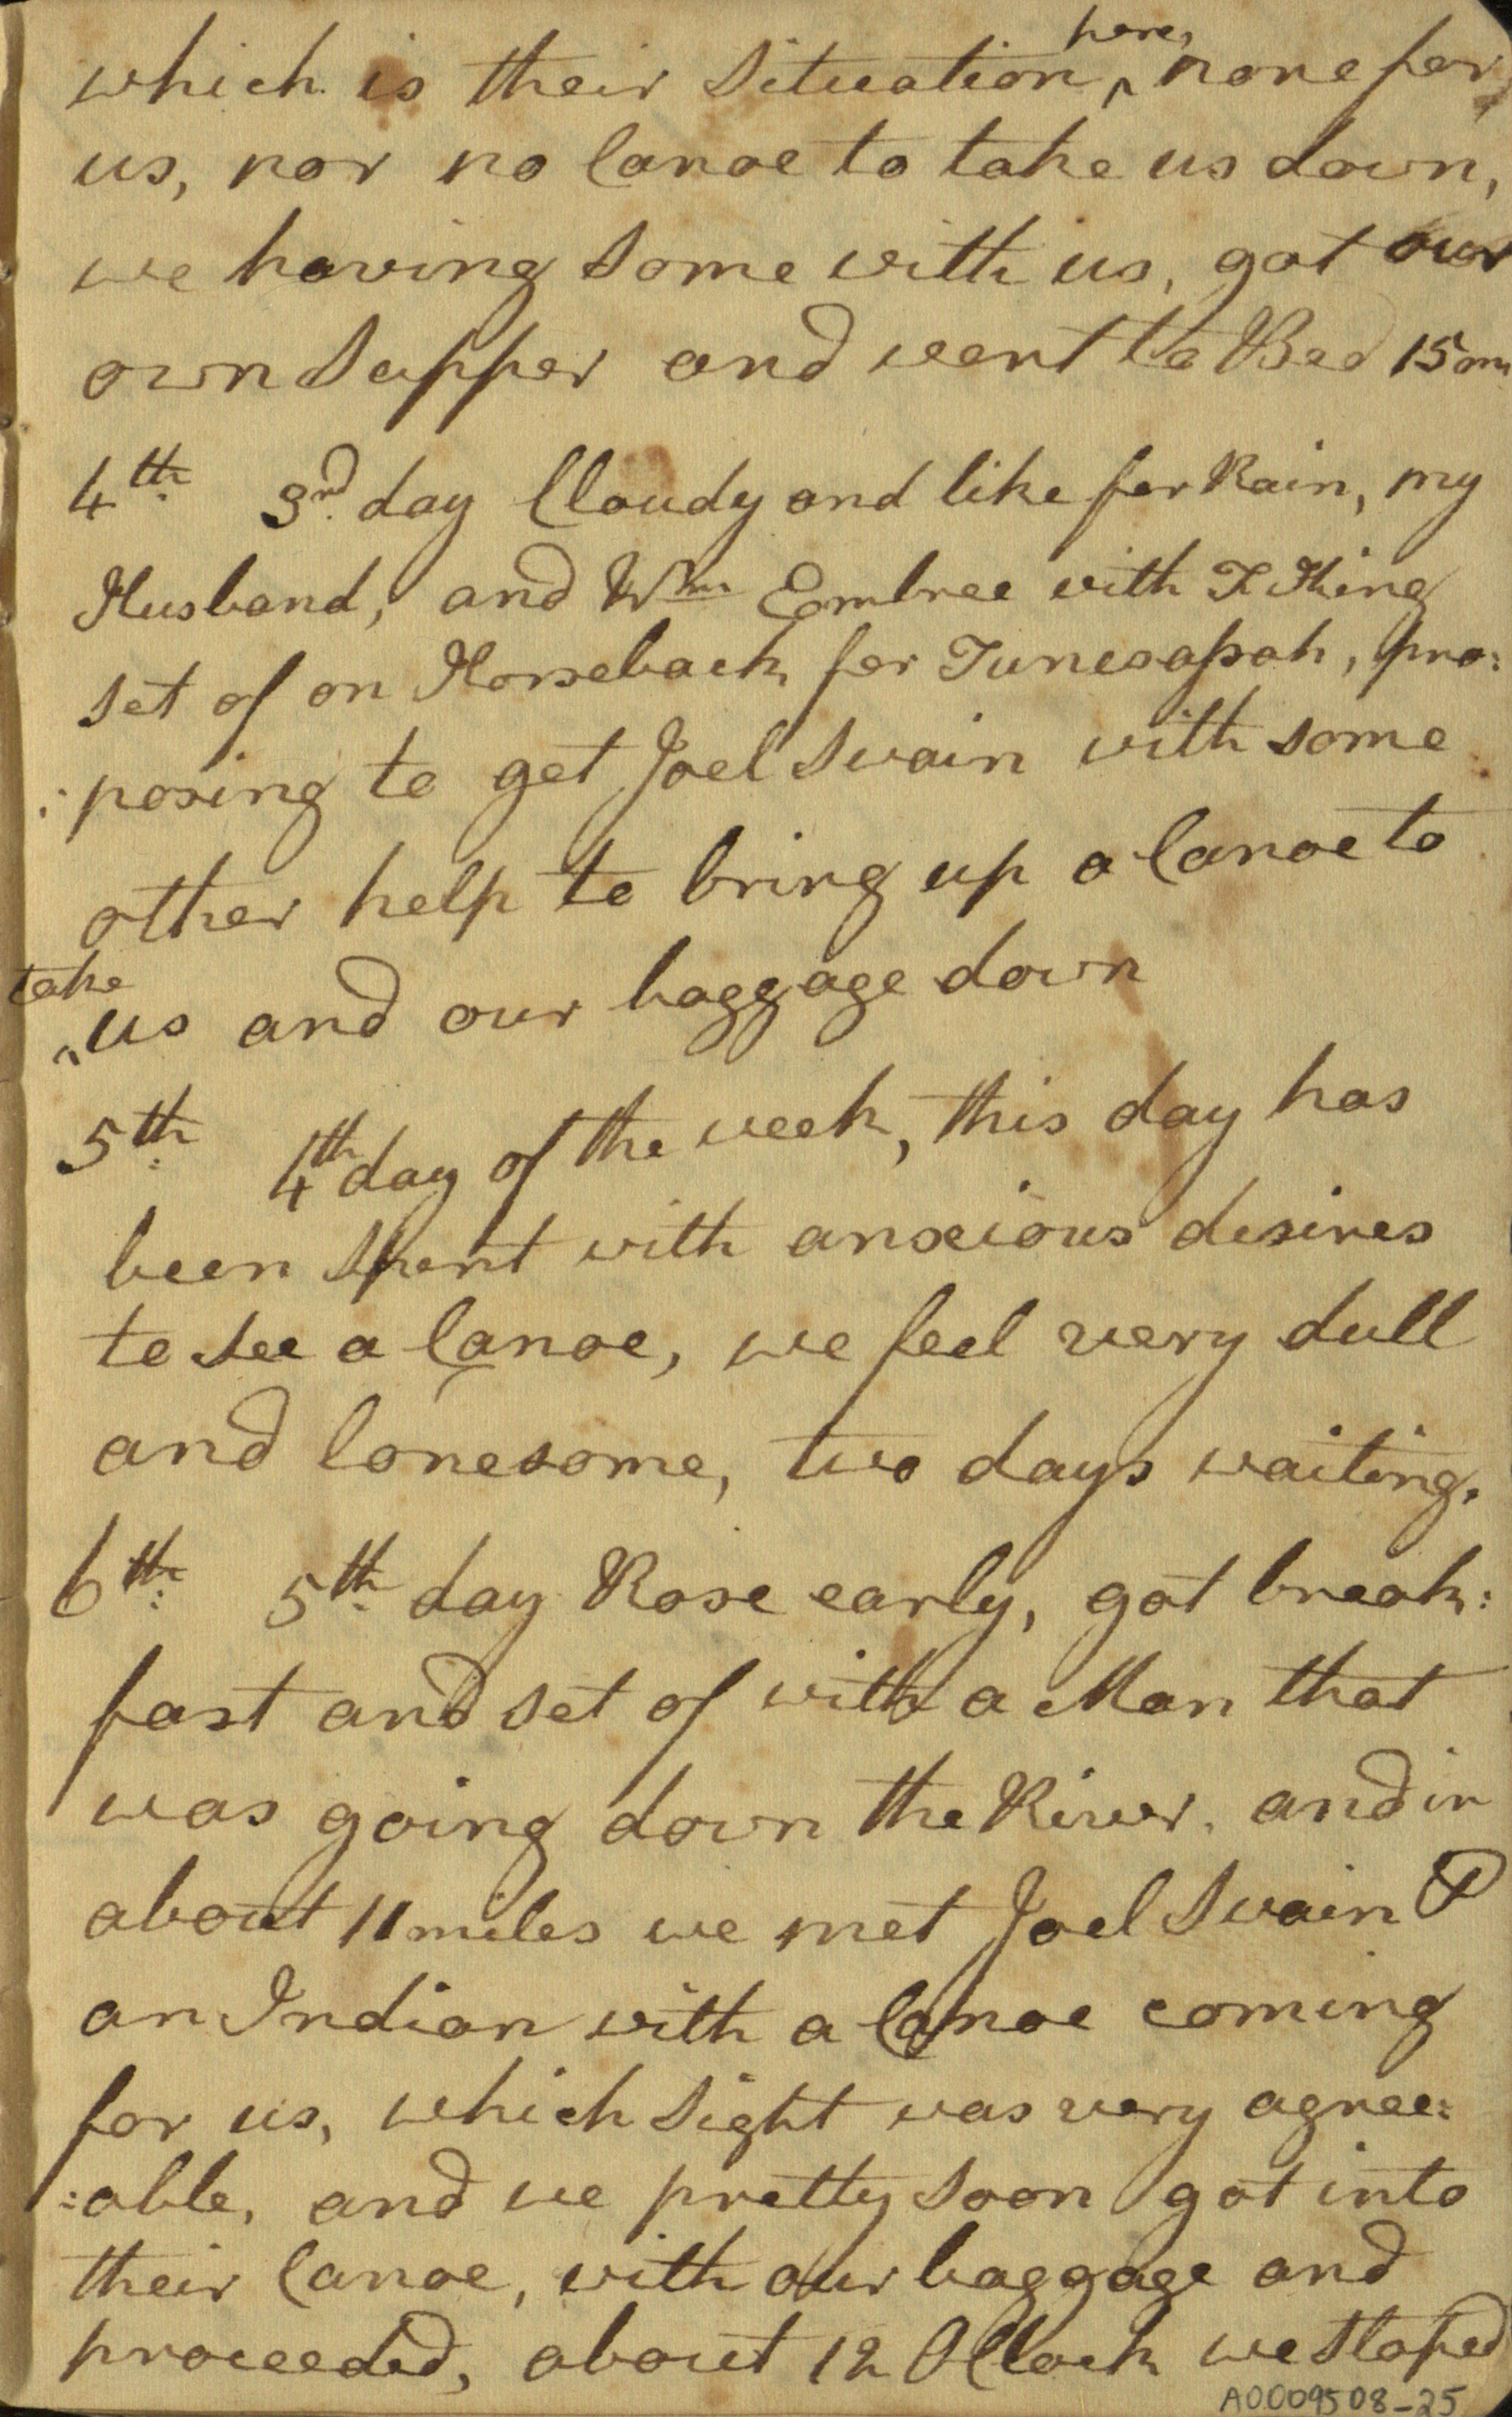 which is their Situation, ^here, none for
us, nor no Canoe to take us down,
we having Some with us, got our
own Supper and went to Bed 15 m
4th 3rd day Cloudy and like for Rain, my
Husband, and Wm Embree with T King
set of on Horseback for Tunesassah, pro:
:posing to get Joel Swain with some
other help to bring up a Canoe to
^take us and our baggage down
5th: 4th day of the week, this day has
been Spent with anxious desires
to see a Canoe, we feel very dull
and lonesome, two days waiting.
6th: 5th day Rose early, got break:
fast and set of with a Man that
was going down the River, and in
about 11 miles we met Joel Swain &
an Indian with a Canoe coming
for us, which Sight was very agree:
:able, and we pretty Soon got into
their Canoe, with our baggage and
proceeded, about 12 OClock we Stoped
A0009508-25